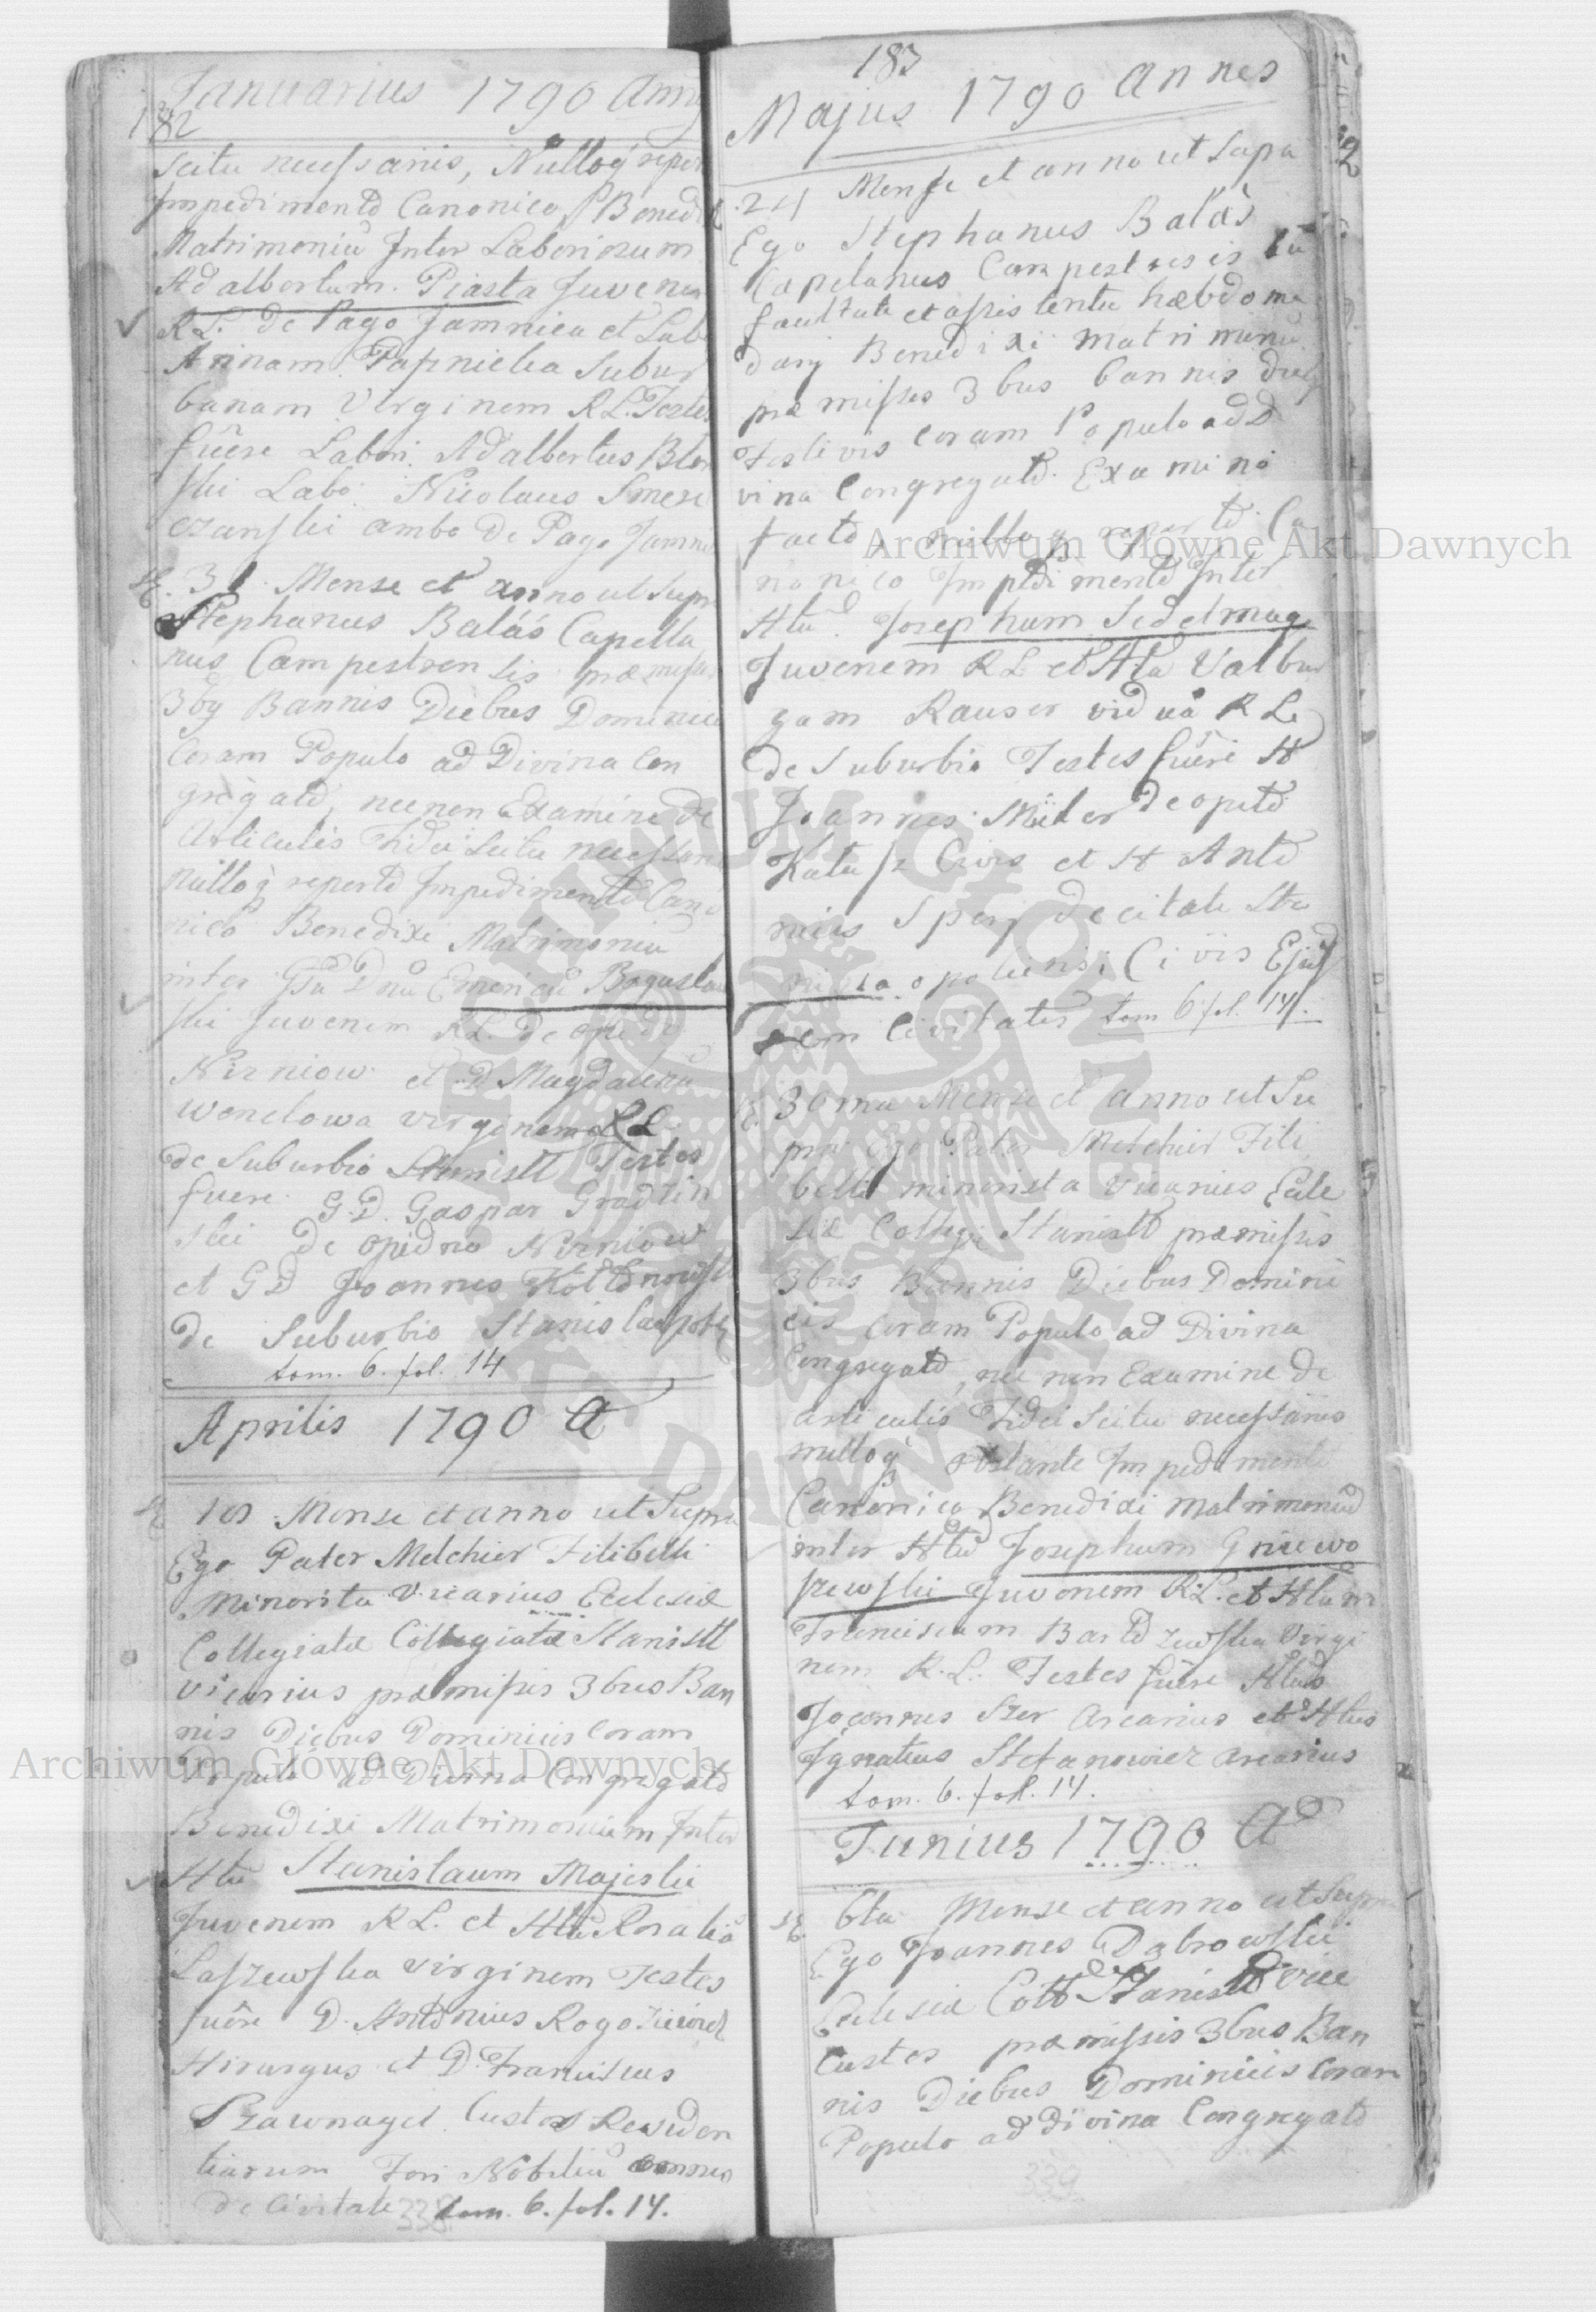 182
Januarius 1790 Anny
Scitu necessariis, Nulloq reper
Impedimento Canonico Bened
Matrimoniu Inter Laboriosum
Adalbertum Piasta Juvenem
RL. de Pago Jamnica et Lab
Annam Subur
banam Virginem RL. Testes
fuêre Labori Adalbertus
ski Labo Nicolaus
czanski ambo De Pago Jamni
31 Mense et anno ut Supra
Stephanus Balás Capella
nus Campestrensis præmissis
3bq Bannis Diebus Dominicis
Coram Populo ad Divina Con
gregato, necnon Examine de
Articulis Fidei Scitu necessari
nulloq reperto Impedimento Cano
nico Benedixi Matrimoniu
inter Gsu Dnu Emericu Boguslaw
ski Juvenem RL. De opido
Nizniow et D Magdalenu
Wonclowa Virginem RL
de Suburbio Stanisll Testes
fuere G.D. Gaspar Gradzin
ski De opidno Nizniow
et GD Joannes
De Suburbio Stanislaopoli
tom. 6. fol. 14
Aprilis 1790 A
10 Mense et anno ut Supra
Ego Pater Melchior Filibelli
Minorita Vicarius Eclesiæ
Collegiatæ Collegiatæ Stanisll
Vicarius præmissis 3bus Ban
nis Diebus Dominicis Coram
Populo ad Divina Congregato
Benedixi Matrimonium Inter
Htu Stanislaum Majeski
Juvenem RL. et Hta Rosaliã
Laszewska Virginem Testes
fuêre D. Antonius
Hirurgus et D. Franciscus
Custos Residen
tiarum Fori Nobiliu omnes
De Civitate tom. 6. fol. 14.
338
183
Majus 1790 Annes
24 Mense et anno ut Supa
Ego Stephanus Balás
Capelanus Campestresis cu
facultate et assistentia hæbdoma
darij Benedixi Matrimoniu
præmissis 3bus bannis dieb
Festivis Coram Populo ad D
vina Congregato. Examino
facto, nulloq reperto Ca
nonico Impedimento Inter
Htu Josephum Sedelmage
Juvenem RL et Hta Valbur
gam Rauser viduã RL
de Suburbio Testes fuêre H
Joannes Miler de opido
Kalusz Civis et H Anto
nius Sperj de citate Sta
nislaopoliensi Civis Ejus
dem Civitatis tom 6 fol. 14.
30ma Mense et anno ut Su
pra Ego Pater Melchior Fili
belli minorista Vicarius Ecle
siæ Collegi Stanisll præmissis
3bus Bannis Diebus Domini
cis Coram Populo ad Divina
Congregato, nec non Examine de
articulis Fidei Scitu necessariis
nulloq obstante Impedimento
Canonico Benedixi Matrimoniu
inter Htu Josephum Gniewo
szewski Juvenem RL. et Htam
Franciscam Virgi
nem R.L. Testes fuêre Htus
Joannes Szer Arcarius et Htus
Ignatius Stefanowicz arcarius
tom. 6. fol. 14.
Junius 1790 Ao
6ta Mense et anno ut Supra
Ego Joannes Dabrowski
Eclesiæ Coll Stanisll Vice
Custos præmissis 3bus Ban
nis Diebus Dominicis Coram
Populo ad Divina Congregato
339
Archiwum Główne Akt Dawnych
Archiwum Główne Akt Dawnych
ARCHIWUM GŁÓWNE AKT DAWNYCH